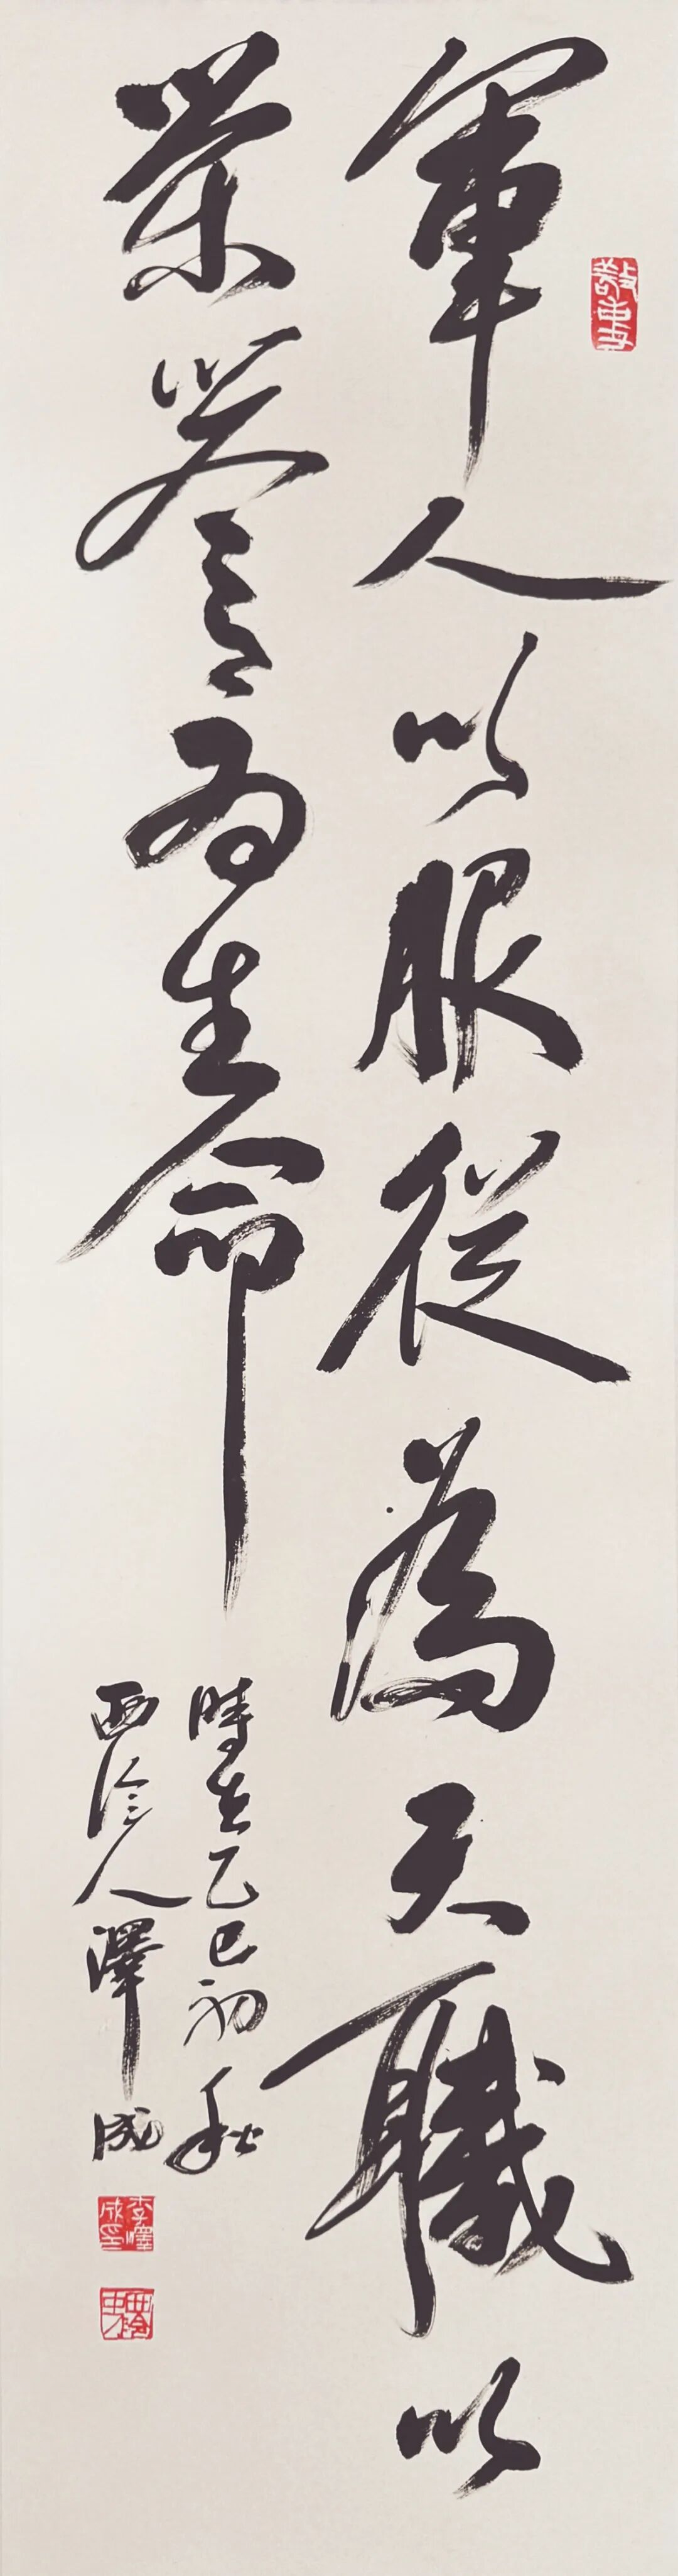 軍人以服從為天職以
榮譽為生命
時在乙巳初秋
西泠人澤成
敬事
李澤成印